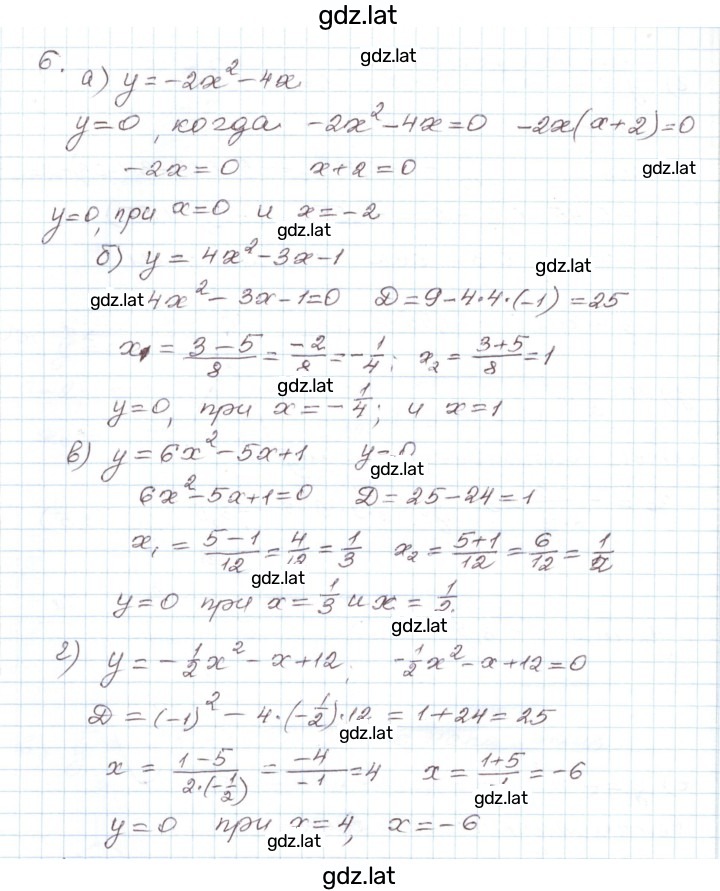 gdz.lat
6. а) y = -2x² - 4x gdz.lat
y=0, когда -2x² - 4x = 0 -2x(x+2)=0
-2x = 0 x+2 = 0 gdz.lat
y=0, при x=0 и x = -2
gdz.lat
б) y = 4x² - 3x - 1 gdz.lat
gdz.lat 4x² - 3x - 1 = 0 D = 9 - 4·4·(-1) = 25
x₁ = (3-5)/8 = -2/8 = -1/4; x₂ = (3+5)/8 = 1
gdz.lat
y=0, при x = -1/4; и x = 1
в) y = 6x² - 5x + 1 y = 0
gdz.lat
6x² - 5x + 1 = 0 D = 25 - 24 = 1
x₁ = (5-1)/12 = 4/12 = 1/3 x₂ = (5+1)/12 = 6/12 = 1/2
gdz.lat
y=0 при x = 1/3 и x = 1/2.
gdz.lat
г) y = -1/2x² - x + 12, -1/2x² - x + 12 = 0
D = (-1)² - 4·(-1/2)·12 = 1 + 24 = 25
gdz.lat
x = (1-5)/(2·(-1/2)) = -4/-1 = 4 x = (1+5)/-1 = -6
gdz.lat
y=0 при x = 4, x = -6
gdz.lat
gdz.lat